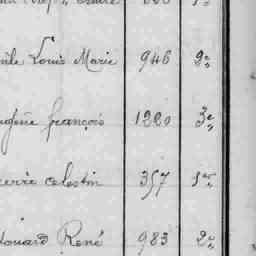 Louis Marie 946 2e
François 1220 3e
Pierre Celestin 357 1er
Édouard René 983 2e